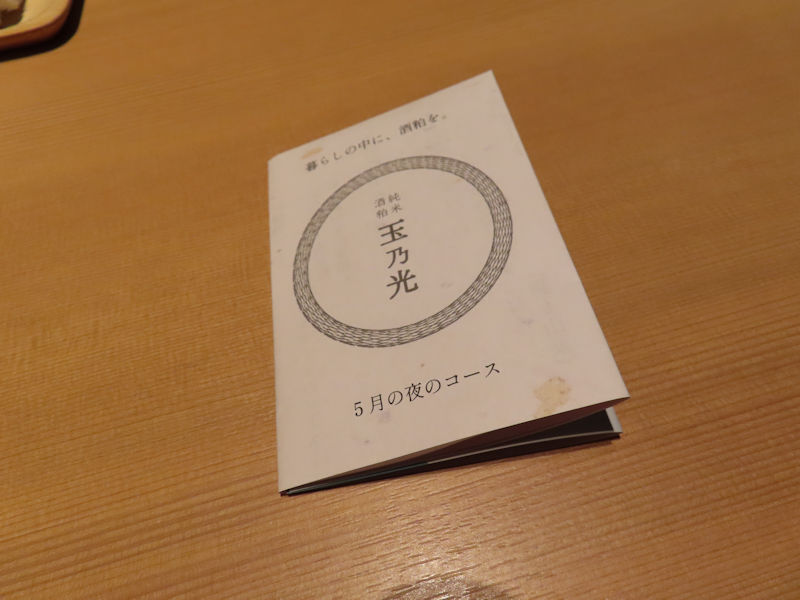 暮らしの中に、酒粕を。
純米
酒粕
玉乃光
5月の夜のコース